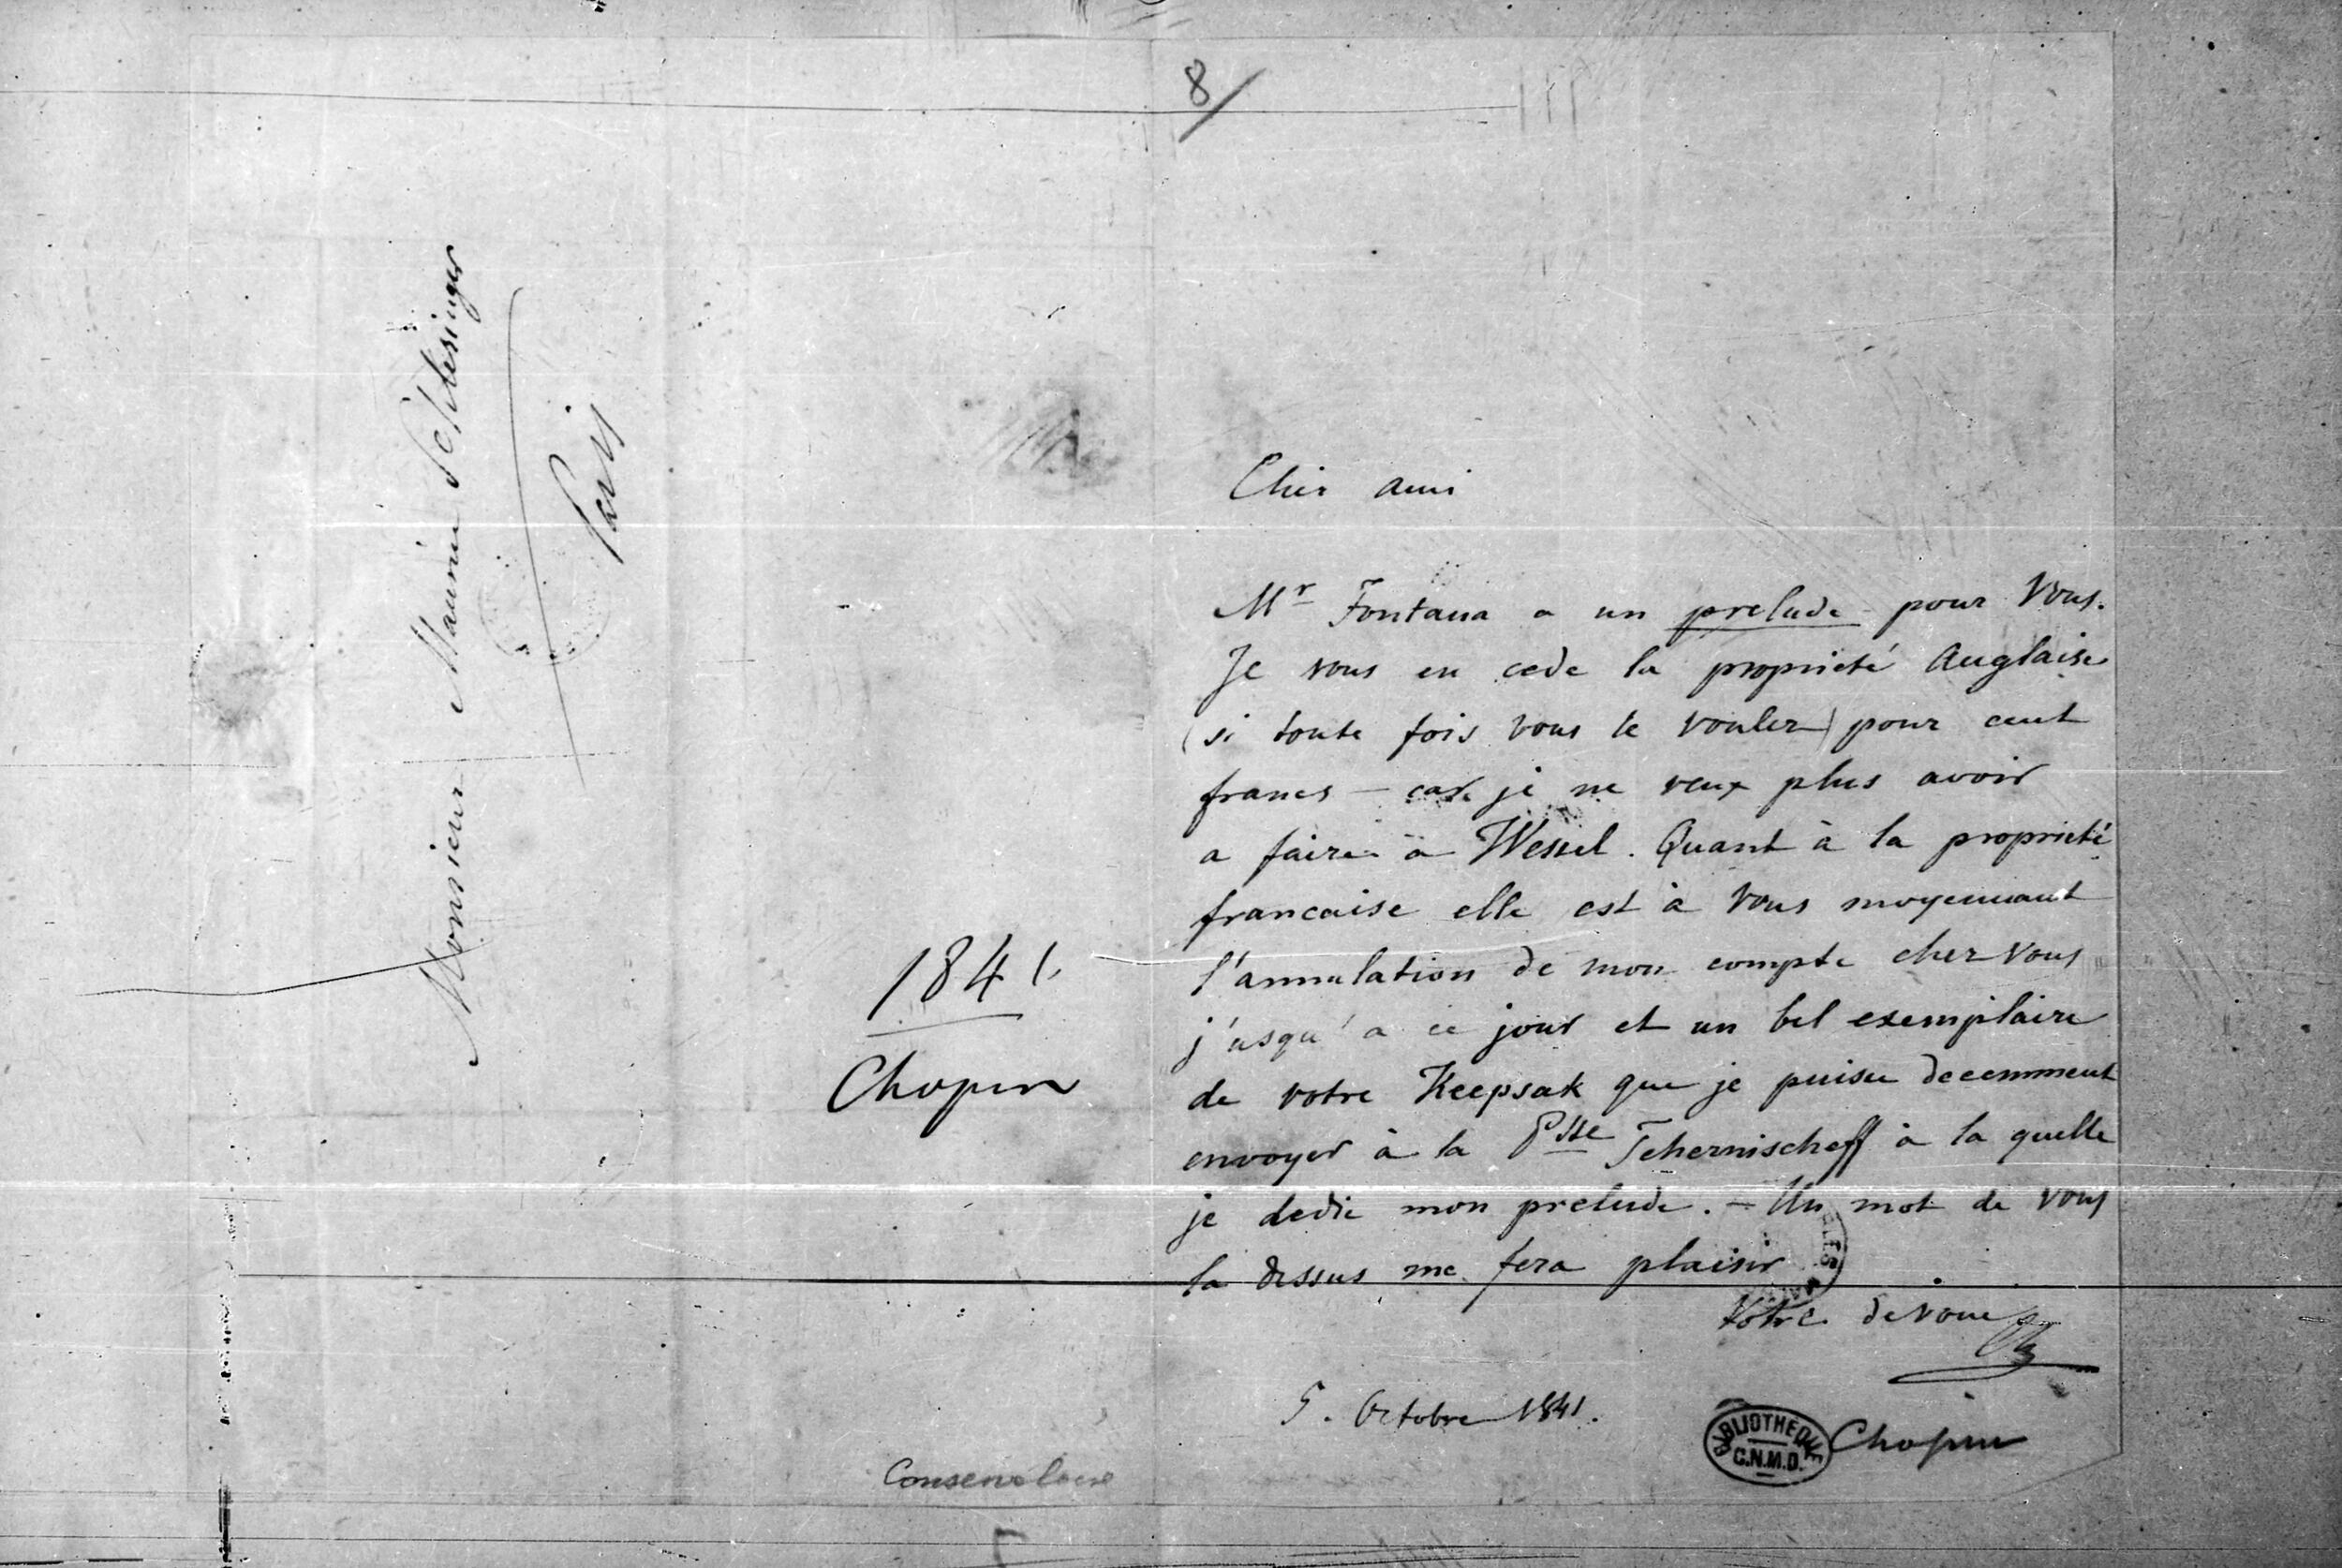 8/
Monsieur Maurice Schlesinger
Paris
1841.
Chopin
Conservatoire
Cher ami
Mr Fontana a un prelude pour Vous.
Je vous en cede la proprieté Anglaise
(si toute fois vous le voulez) pour cent
francs – car je ne veux plus avoir
a faire à Wessel. Quant à la proprieté
francaise elle est à Vous moyennant
l'annulation de mon compte chez Vous
j'usqu'a ce jour et un bel exemplaire
de votre Keepsak que je puisse decemment
envoyer à la Psse Tchernischeff à la quelle
je dedie mon prelude. – Un mot de vous
la dessus me fera plaisir
Votre devoué
Ch
5. Octobre 1841.
BIBLIOTHEQUE
C.N.M.D.
Chopin